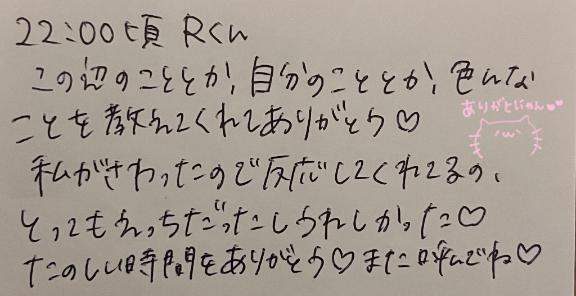 22:00頃 Rくん
この辺のこととか、自分のこととか、色んな
ことを教えてくれてありがとう♡
ありがとにゃん♥♥
私がさわったので反応してくれてるの、
とってもえっちだったしうれしかった♡
たのしい時間をありがとう♡また呼んでね♡